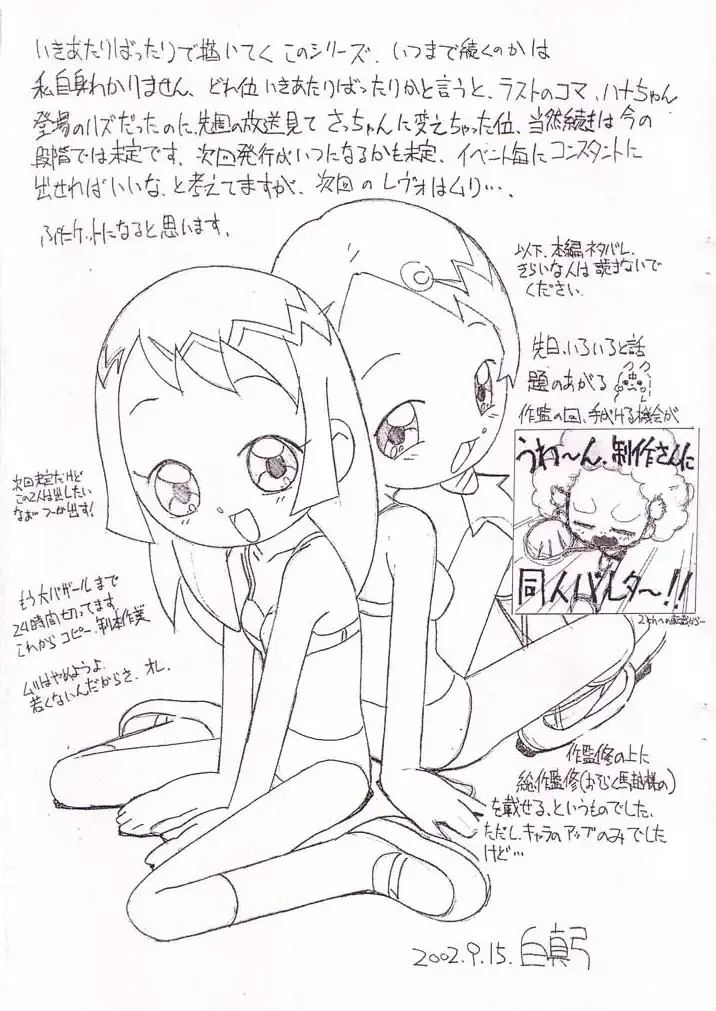 いきあたりばったりで描いてく このシリーズ、いつまで続くのかは
私自身わかりません、どれ位いきあたりばったりかと言うと、ラストのコマ、ハナちゃん
登場のハズだったのに、先週の放送見て さっちゃんに変えちゃった位、当然続きは今の
段階では未定です、次回発行がいつになるかも未定、イベント毎にコンスタントに
出せればいいな、と考えてますが、次回のレヴォはムリ…、
ぷにケットになると思います。
以下、本編ネタバレ、
きらいな人は読まないで
ください。
先日、いろいろと話
題のあがる
作監の回、手がける機会が
うわ〜ん、制作さんに
同人バレタ〜!!
2chへの
作監修の上に
総作監修(おそらく馬越様の)
を載せる、というものでした、
ただし、キャラのアップのみでした
けど…
次回未定だけど
この2人は出したい
なぁ つーか出す!
もう大バザールまで
24時間切ってます、
これからコピー、製本作業
ムリはやめようよ、
若くないんだからさ、オレ、
2002.9.15. 白真弓